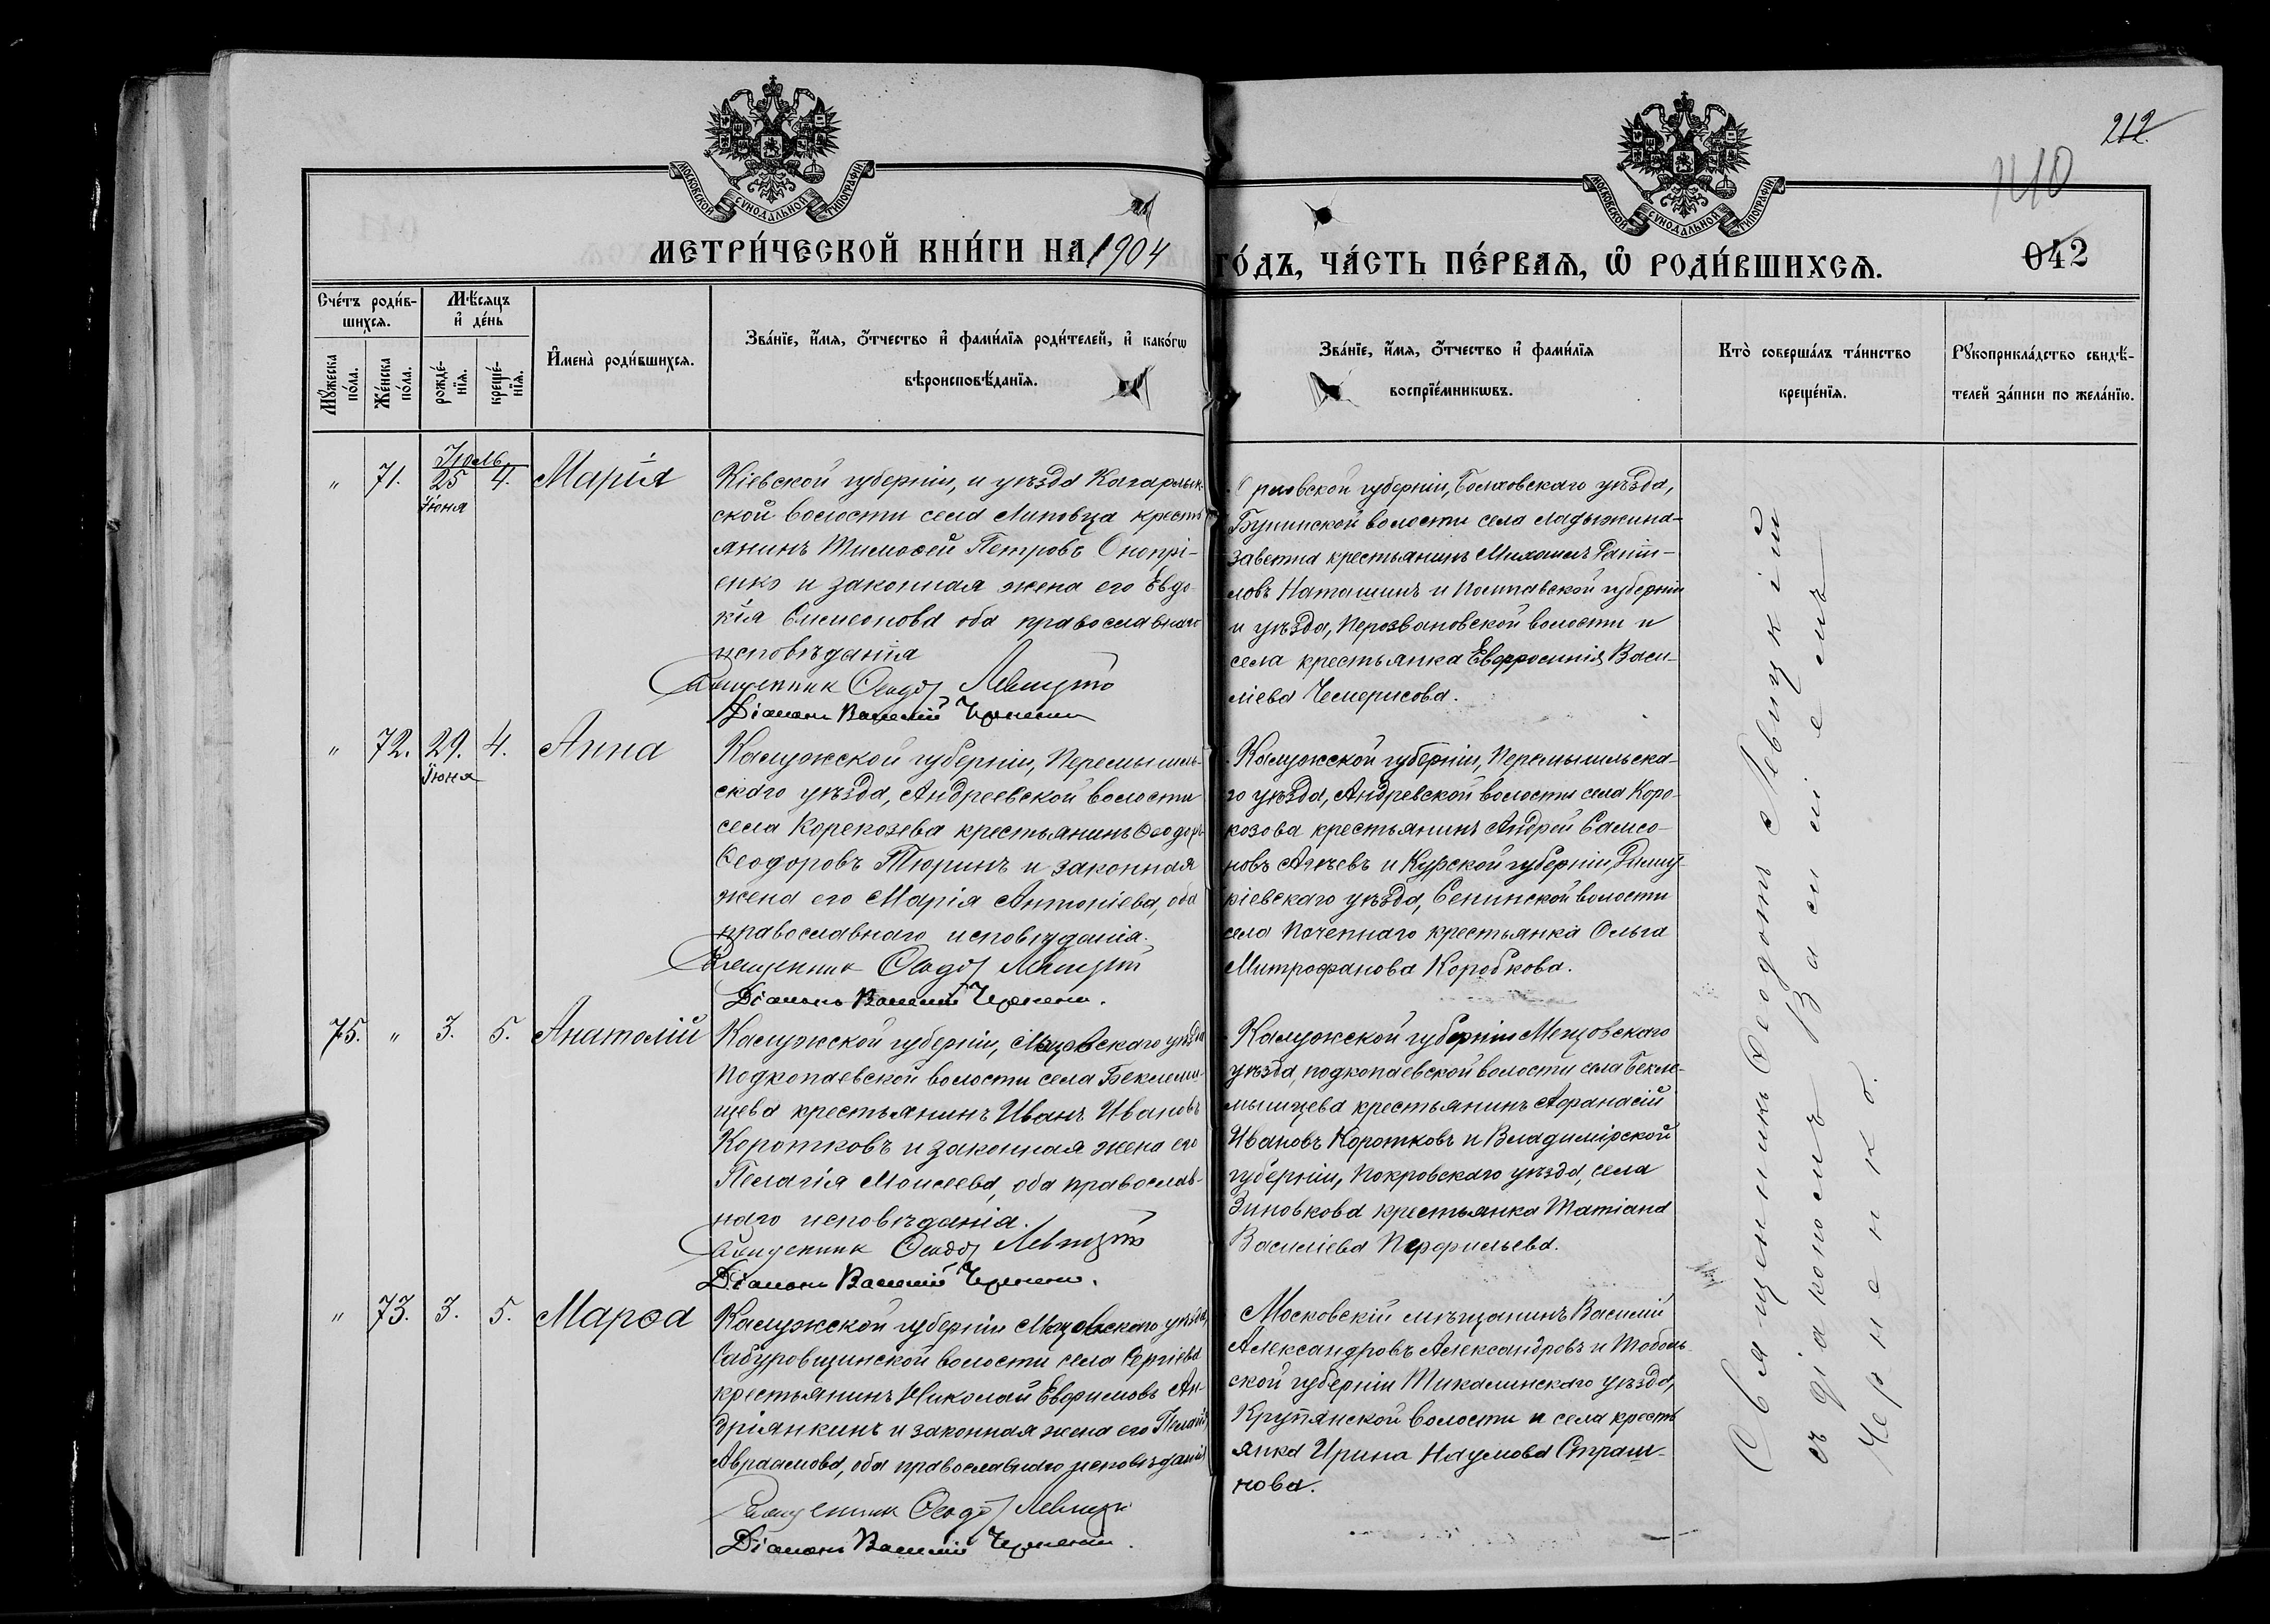 212
140
042
МОСКОВСКОЙ СѴНОДАЛЬНОЙ ТИПОГРАФІИ
МОСКОВСКОЙ СѴНОДАЛЬНОЙ ТИПОГРАФІИ
МЕТРИ́ЧЕСКОЙ КНИ́ГИ НА 1904
ГО́ДЪ, ЧА́СТЬ ПЕ́РВАѦ, Ѡ҆ РОДИ́ВШИХСѦ.
Сче́тъ роди́в-
шихсѧ.
Мꙋ́жеска по́ла.
Же́нска по́ла.
Мѣ́сѧцъ
и҆ де́нь
рожде́-
нїѧ.
креще́-
нїѧ.
И҆мена̀ роди́вшихсѧ.
Зва́нїе, и҆́мѧ, ѻ҆́тчество и҆ фами́лїѧ роди́телей, и҆ како́гѡ
вѣроисповѣ́данїѧ.
Зва́нїе, и҆́мѧ, ѻ҆́тчество и҆ фами́лїѧ
воспрїе́мникѡвъ.
Кто̀ соверша́лъ та́инство
креще́нїѧ.
Рꙋкоприкла́дство свидѣ́-
телей за́писи по жела́нїю.
Іюль
" 71. 25 4. Марія
Іюня
Кіевской губерніи, и уѣзда Кагарлык-
ской волости села Липовца кресть
янинъ Тимоѳей Петровъ Онопрі-
енко и законная жена его Евдо-
кія Симеонова оба православнаго
исповѣданія
Священник Ѳеодот Левицкій
Діаконъ Василій Черненко
Орловской губерніи, Болховскаго уѣзда,
Бунинской волости села Ладыжина-
заветна крестьянинъ Михаилъ Даніи-
ловъ Наташинъ и Полтавской губерніи
и уѣзда, Перозвановской волости и
села крестьянка Евфросинія Васи-
ліева Чемерисова.
" 72. 29. 4. Анна
Іюня
Калужской губерніи, Перемышль-
скаго уѣзда, Андреевской волости
села Корекозева крестьянинъ Ѳеодоръ
Ѳеодоровъ Тюринъ и законная
жена его Марія Антоніева, оба
православнаго исповѣданія.
Священник Ѳеодот Левицкій
Діаконъ Василій Черненко.
Калужской губерніи, Перемышльска-
го уѣзда, Андревской волости села Коре-
козова крестьянинъ Андрей Самсо-
новъ и Курской губерніи, Дмит-
ріевскаго уѣзда, Сенинской волости
села Почепнаго крестьянка Ольга
Митрофанова Коробкова.
75. " 3. 5. Анатолій
Калужской губерніи, Мещовскаго уѣзда
Подкопаевской волости села Беклеми-
щева крестьянинъ Иванъ Ивановъ
Коротковъ и законная жена его
Пелагія Моисеева, оба православ-
наго исповѣданія.
Священник Ѳеодот Левицкій
Діаконъ Василій Черненко.
Калужской губерніи Мещовскаго
уѣзда, подкопаевской волости села Бекле-
мышцева крестьянинъ Аѳанасій
Ивановъ Коротковъ и Владимірской
губерніи, Покровскаго уѣзда, села
Зиновкова крестьянка Татіана
Василіева Перфильева.
" 73. 3. 5. Марѳа
Калужской губерніи Мещовскаго уѣзда,
Сабуровщинской волости села Сергіева
крестьянинъ Николай Евфимовъ Ан-
дріянкинъ и законная жена его Пелагія
Авраамова, оба православнаго исповѣданія
Священник Ѳеодот Левицкій
Діаконъ Василій Черненко.
Московскій мѣщанинъ Василій
Александровъ Александровъ и Тоболь-
ской губерніи Тикалинскаго уѣзда,
Крутянской волости и села кресть
янка Ирина Наумова Страш-
нова.
Священникъ Ѳеодотъ Левицкій
съ діакономъ Василіемъ
Черненко.